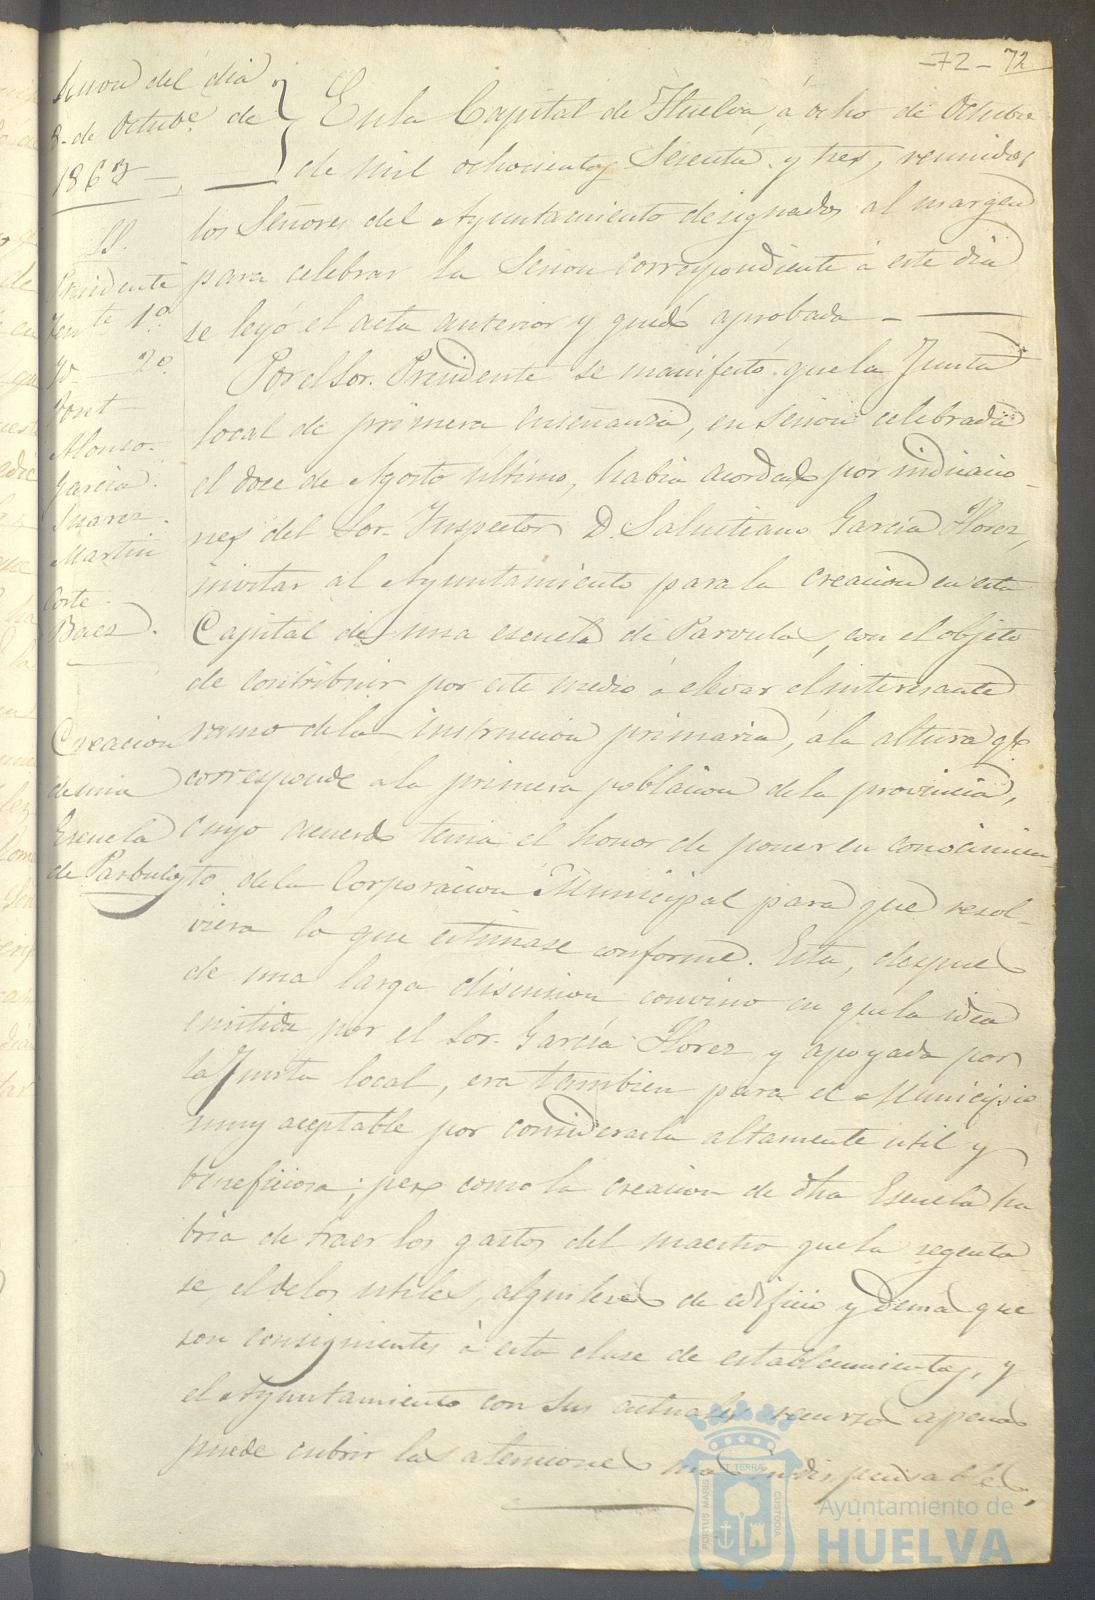 -72- 72
Sesion del dia
8. de Octubre. de
1863
SS.
Presidente
Tente 1º.
Yd 2º.
Pont
Alonso.
Garcia.
Suarez.
Martin
Corte.
Baez.
Creacion
de una
Escuela
de Parbulos
En la Capital de Huelva, á ocho de Octubre
de mil ochocientos Sesenta y tres, reunidos
los Señores del Ayuntamiento designados al margen
para celebrar la Sesion correspondiente á este dia
se leyó el acta anterior y quedó aprobada
Por el Sor. Presidente se manifestó que la Junta
local de primera enseñanza, en sesion celebrada
el doce de Agosto ultimo, habia acordado por indicacio-
nes del Sor. Inspector D. Salustiano Garcia Florez,
invitar al Ayuntamiento para la creacion en esta
Capital de una escuela de Parvulos, con el objeto
de contribuir por este medio á elevar el interesante
ramo de la instruccion primaria, á la altura qe.
corresponde a la primera poblacion de la provincia,
cuyo acuerdo tenia el honor de poner en conocimien
to de la Corporacion Municipal para que resol-
viera lo que estimase conforme. Esta, despues
de una larga discusion convino en que la idea
emitida por el Sor. Garcia Florez y apoyada por
la Junta local, era tambien para el Municipio
muy aceptable por considerarla altamente util y
beneficiosa; pero como la creacion de dha Escuela ha
bria de traer los gastos del maestro que la regenta
se, el de los utiles, alquileres de edificio y demas que
son consiguientes á esta clase de establecimientos, y
el Ayuntamiento con sus actuales recursos apenas
puede cubrir las atenciones mas indispensables,
PORTUS MARIS ET TERRAE CUSTODIA
Ayuntamiento de
HUELVA